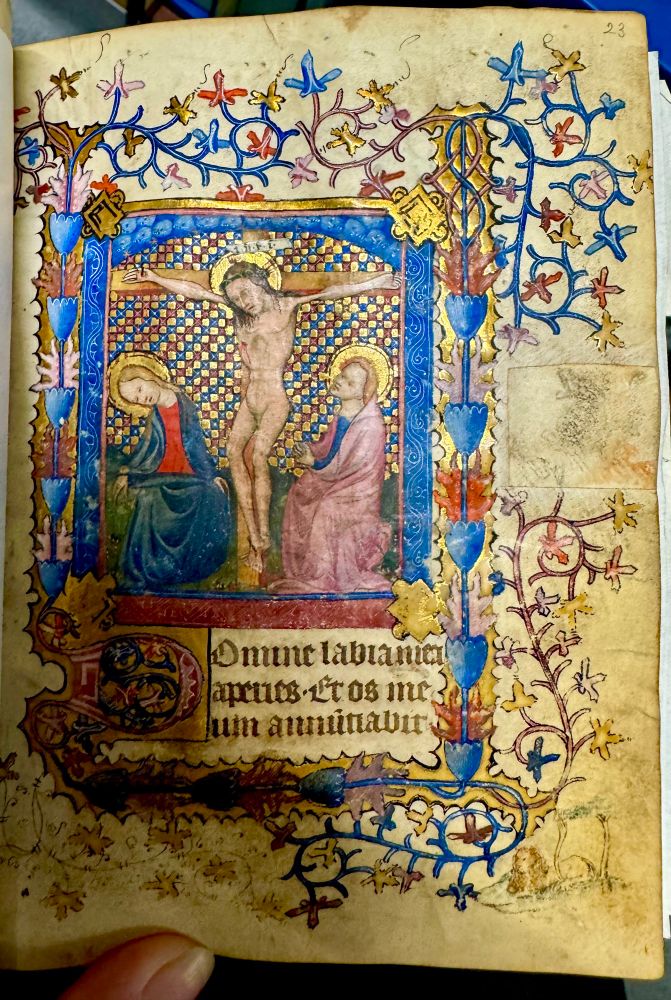 23
Domine labia mea
aperies. Et os me
um annūtiabit